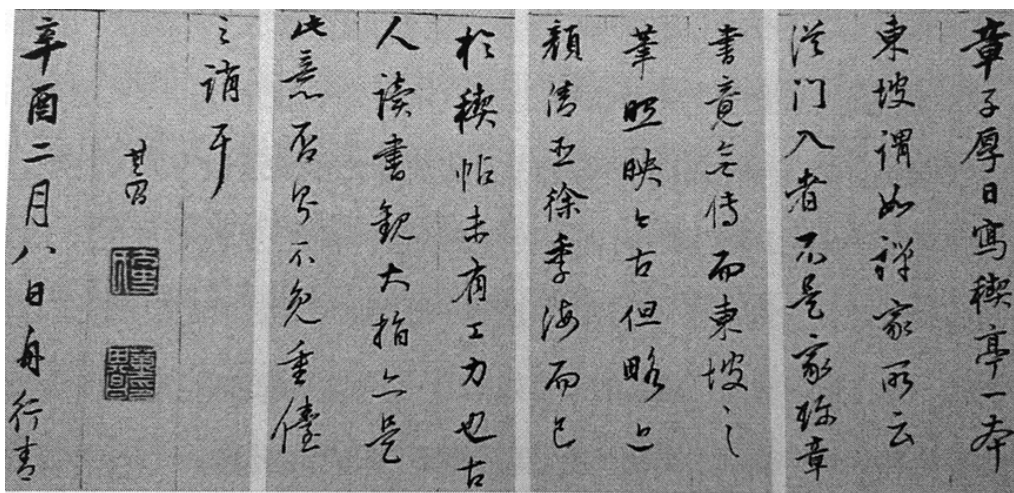 章子厚日寫稧亭一本
東坡謂如禪家所云
從门入者不是家珎章
書竟無傳而東坡之
筆照映今古但略之
顏清臣徐季海而已
於稧帖未有工力也古
人讀書觀大指亦是
此意否恐不免重儓
之誚耳
其昌
辛酉二月八日舟行青